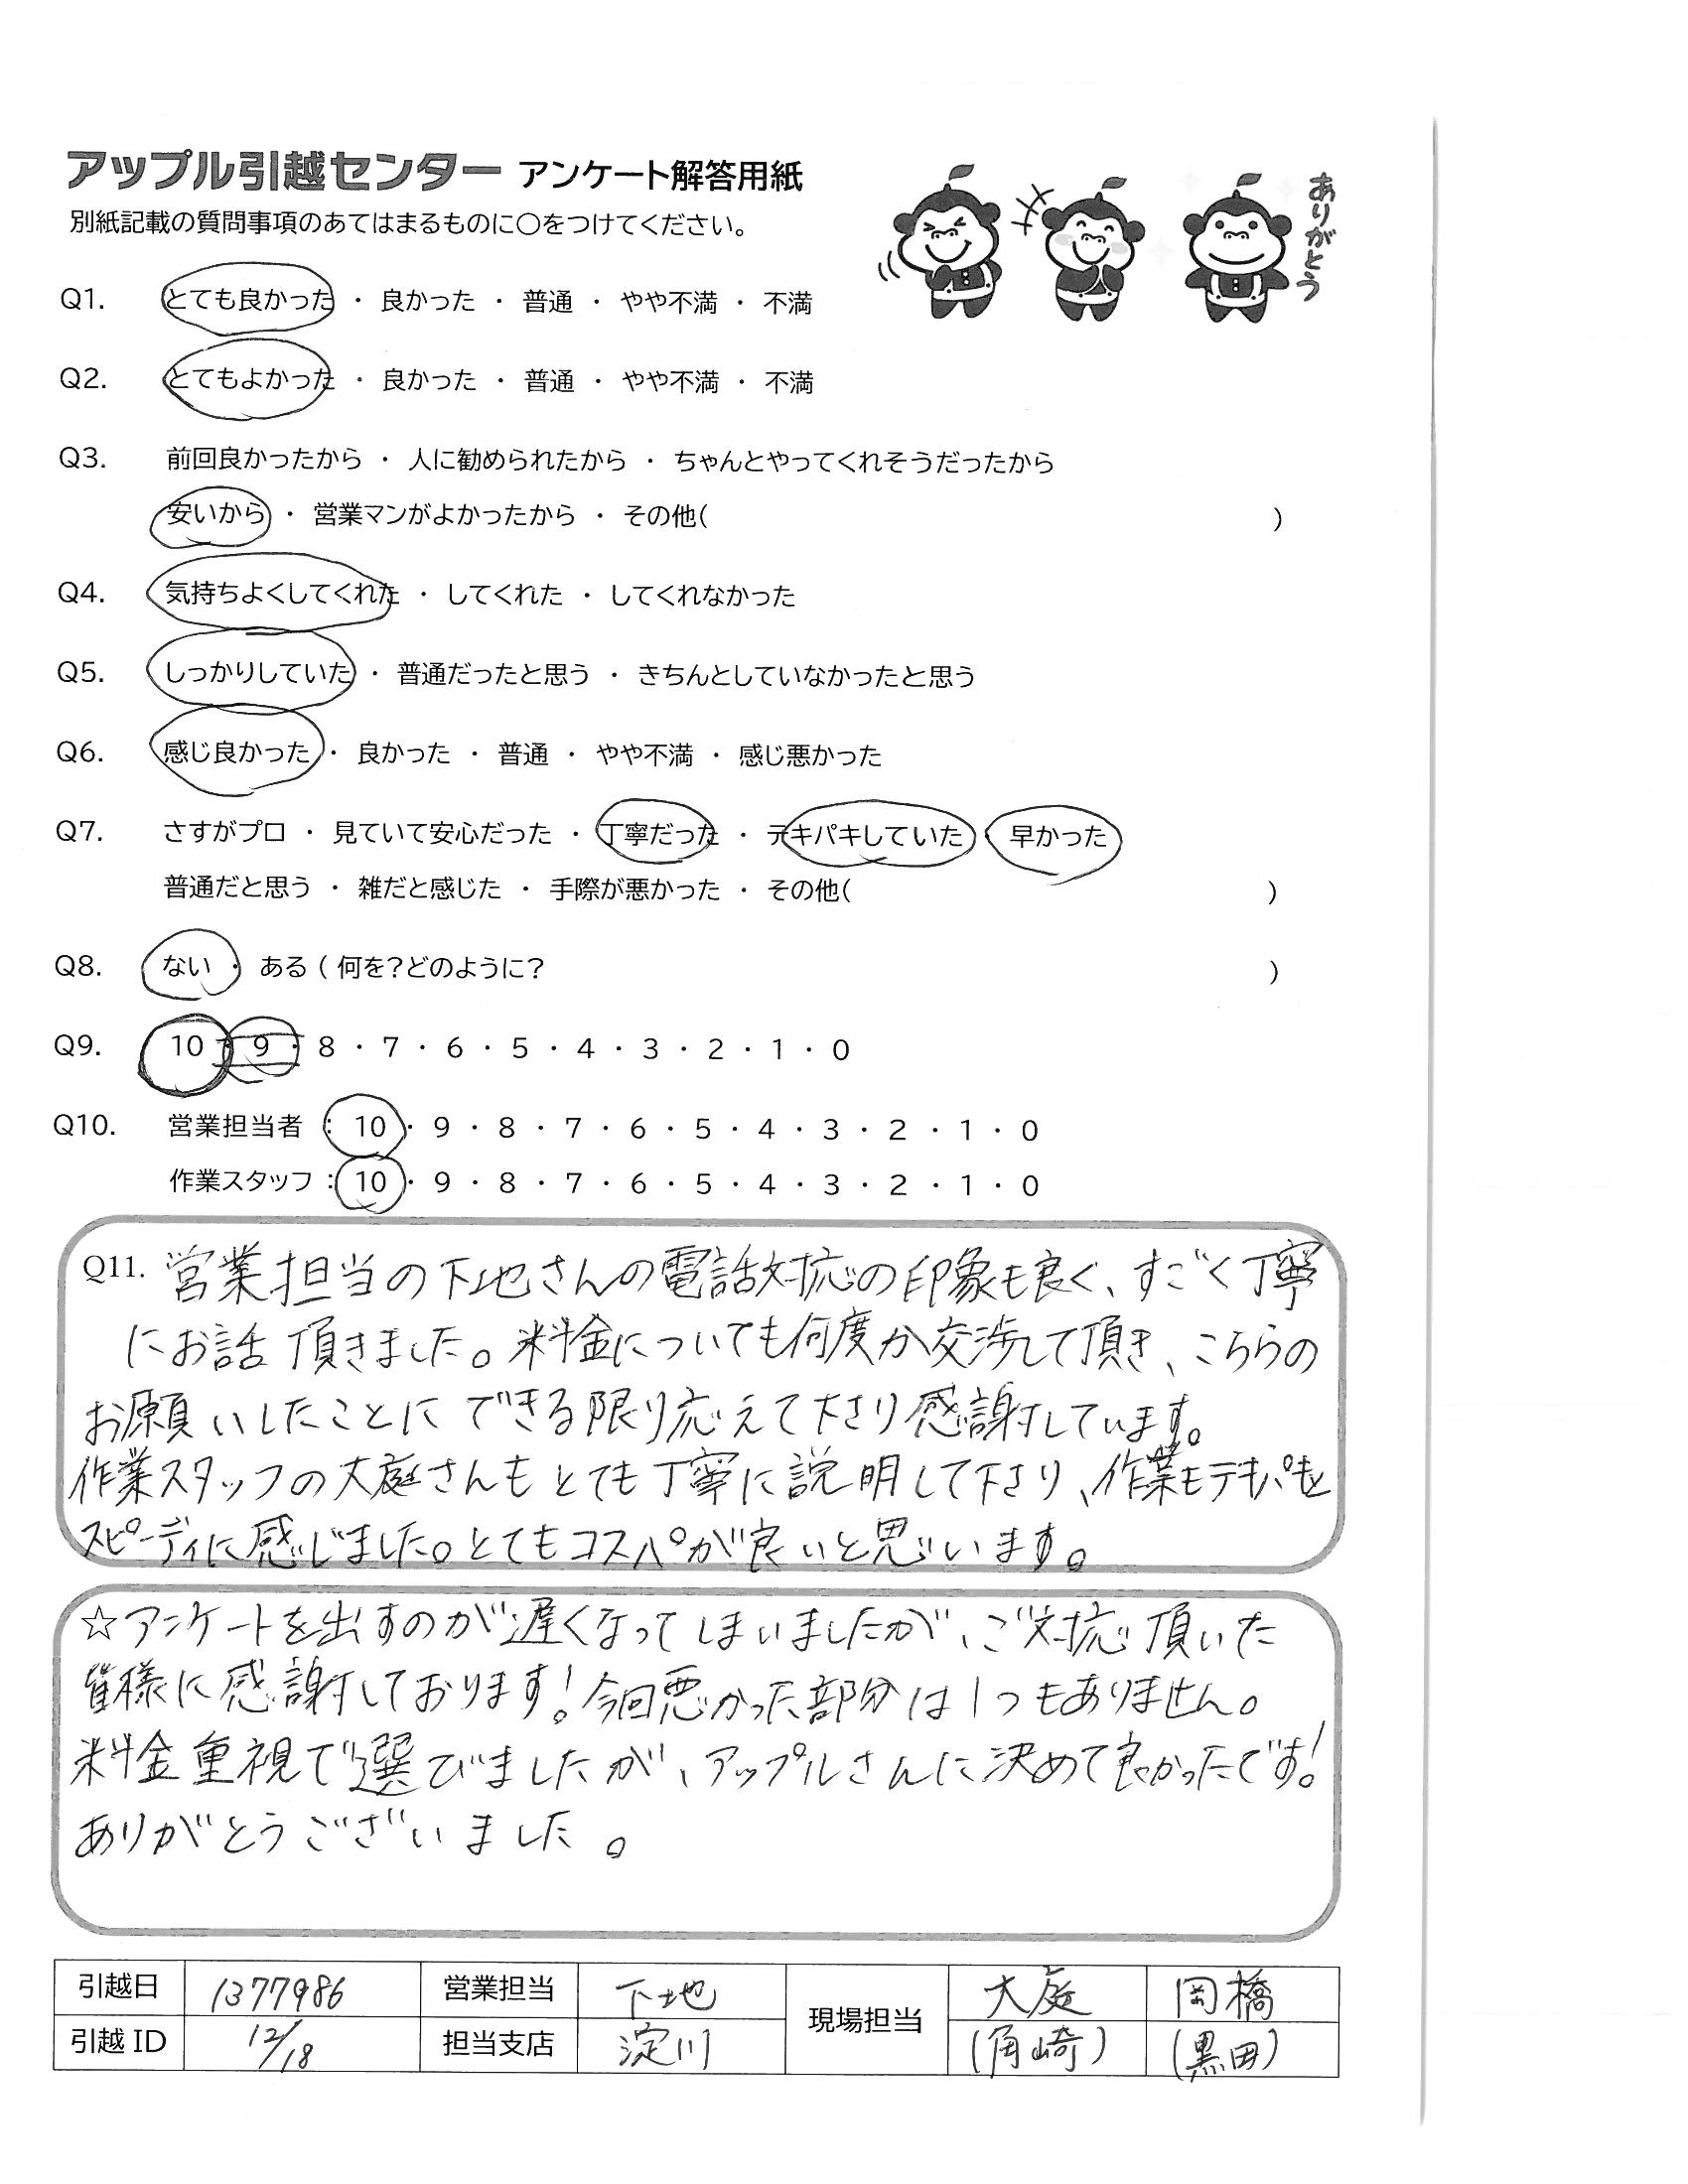 アップル引越センター アンケート解答用紙
ありがとう
別紙記載の質問事項のあてはまるものに〇をつけてください。
Q1. とても良かった ・ 良かった ・ 普通 ・ やや不満 ・ 不満
Q2. とてもよかった ・ 良かった ・ 普通 ・ やや不満 ・ 不満
Q3. 前回良かったから ・ 人に勧められたから ・ ちゃんとやってくれそうだったから
安いから ・ 営業マンがよかったから ・ その他( )
Q4. 気持ちよくしてくれた ・ してくれた ・ してくれなかった
Q5. しっかりしていた ・ 普通だったと思う ・ きちんとしていなかったと思う
Q6. 感じ良かった ・ 良かった ・ 普通 ・ やや不満 ・ 感じ悪かった
Q7. さすがプロ ・ 見ていて安心だった ・ 丁寧だった ・ テキパキしていた ・ 早かった
普通だと思う ・ 雑だと感じた ・ 手際が悪かった ・ その他( )
Q8. ない ・ ある ( 何を?どのように? )
Q9. 10 ・ 9 ・ 8 ・ 7 ・ 6 ・ 5 ・ 4 ・ 3 ・ 2 ・ 1 ・ 0
Q10. 営業担当者 : 10 ・ 9 ・ 8 ・ 7 ・ 6 ・ 5 ・ 4 ・ 3 ・ 2 ・ 1 ・ 0
作業スタッフ : 10 ・ 9 ・ 8 ・ 7 ・ 6 ・ 5 ・ 4 ・ 3 ・ 2 ・ 1 ・ 0
Q11. 営業担当の下地さんの電話対応の印象も良く、すごく丁寧
にお話頂きました。料金についても何度か交渉して頂き、こちらの
お願いしたことにできる限り応えて下さり感謝しています。
作業スタッフの大庭さんもとても丁寧に説明して下さり、作業もテキパキと
スピーディに感じました。とてもコスパが良いと思います。
☆アンケートを出すのが遅くなってしまいましたが、ご対応頂いた
皆様に感謝しております!今回悪かった部分は1つもありません。
料金重視で選びましたが、アップルさんに決めて良かったです!
ありがとうございました。
引越日 1377986 営業担当 下地 現場担当 大庭 岡橋
引越ID 12/18 担当支店 淀川 (角崎) (黒田)